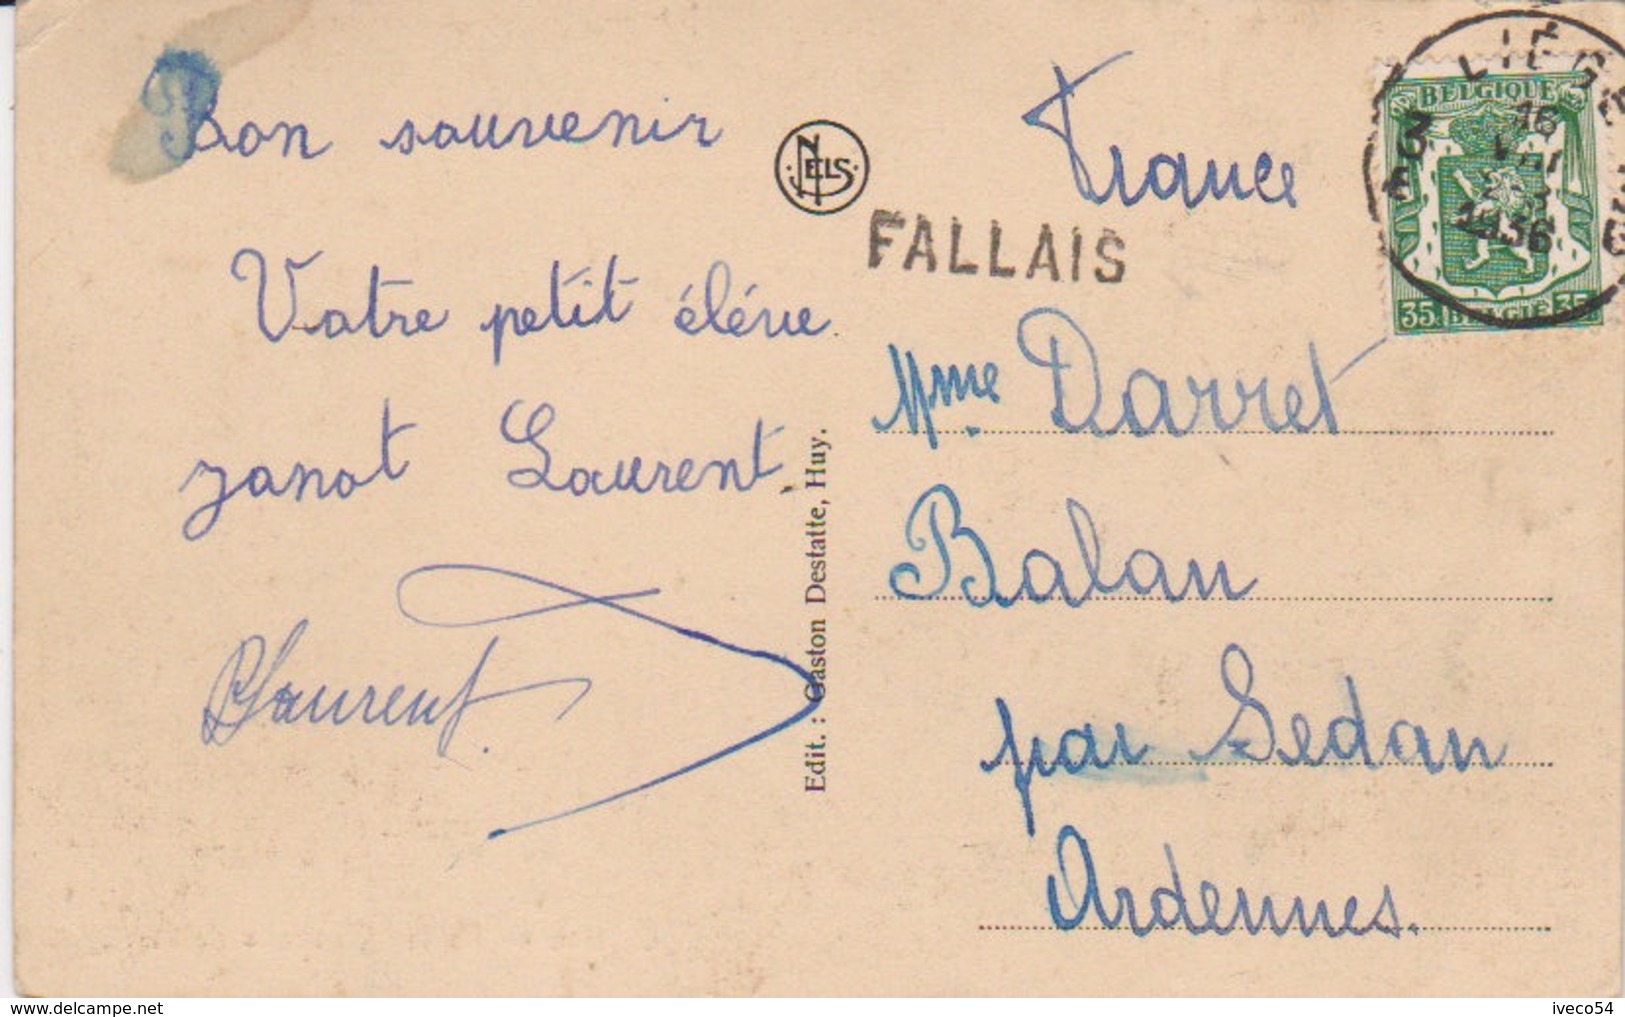 Bon souvenir
Votre petit éléve
janot Laurent.
Laurent.
NELS
Edit. : Gaston Destatte, Huy.
FALLAIS
France
Mme. Darret
Balan
par Sedan
Ardennes.
BELGIQUE
35 BELGIË 35
LIÉGE
3 E
16
VIII
1936
iveco54
www.delcampe.net